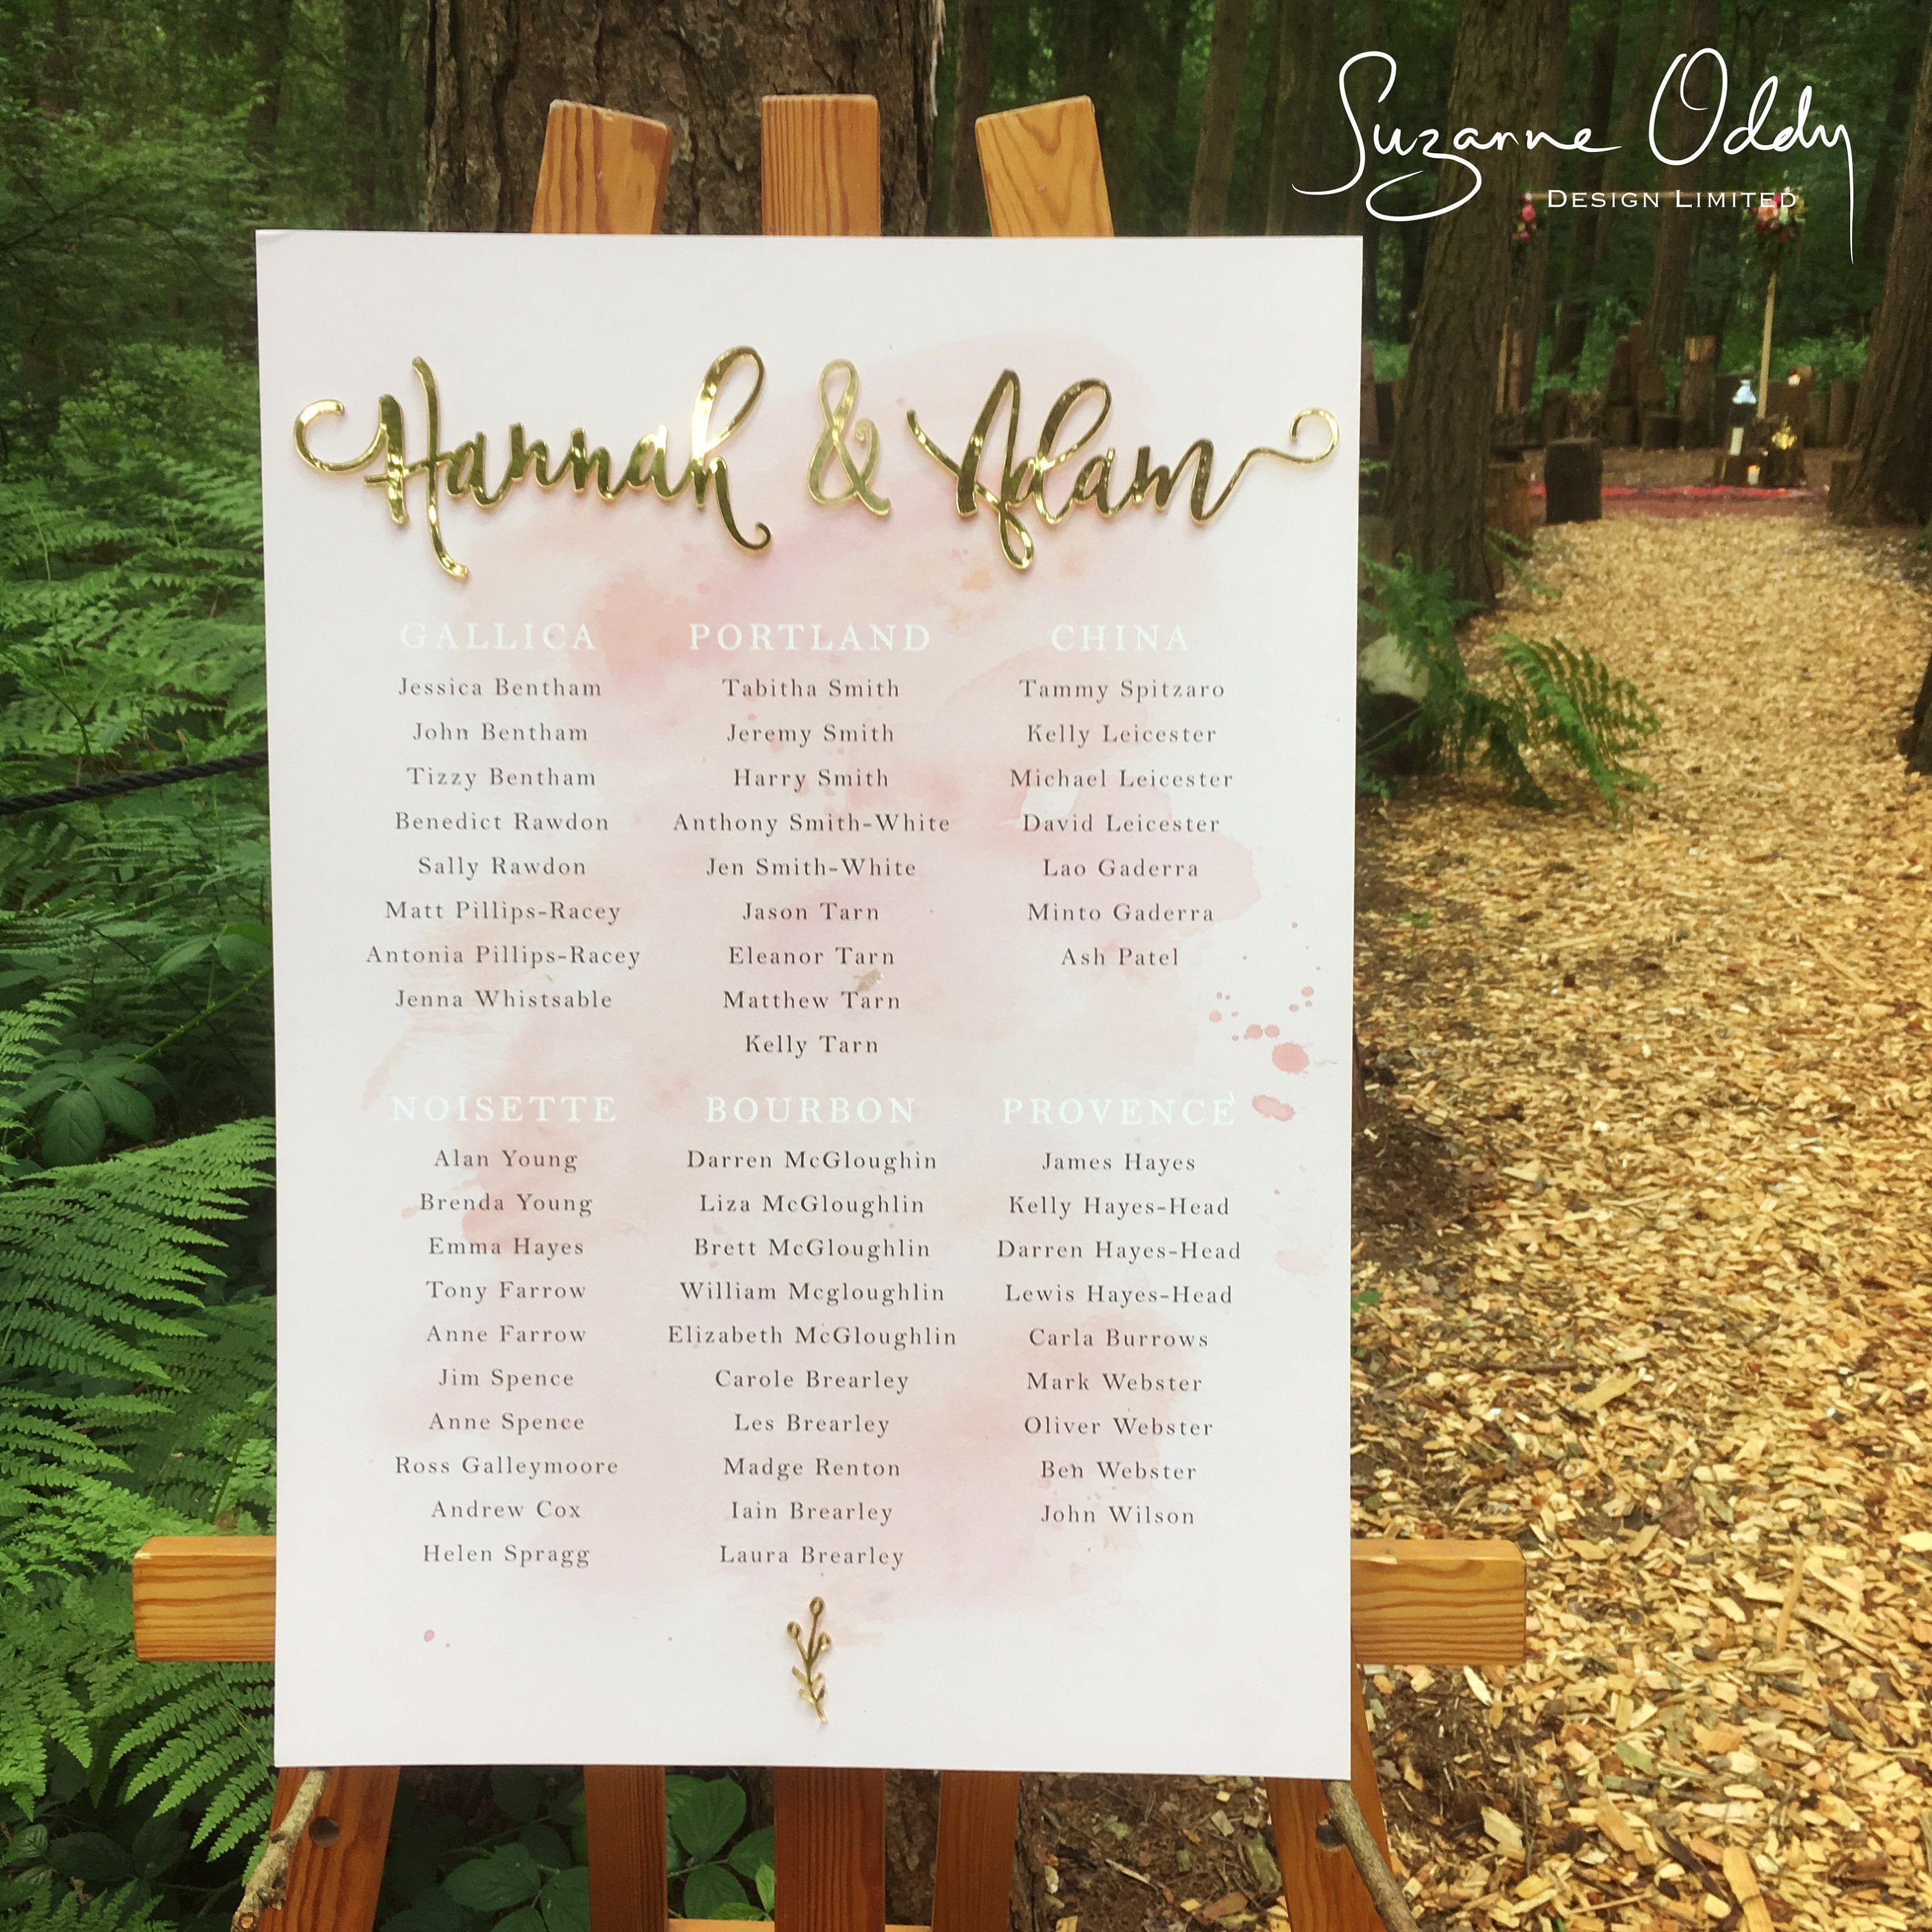 Suzanne Oddy
DESIGN LIMITED
Hannah & Adam
GALLICA
Jessica Bentham
John Bentham
Tizzy Bentham
Benedict Rawdon
Sally Rawdon
Matt Pillips-Racey
Antonia Pillips-Racey
Jenna Whistsable
PORTLAND
Tabitha Smith
Jeremy Smith
Harry Smith
Anthony Smith-White
Jen Smith-White
Jason Tarn
Eleanor Tarn
Matthew Tarn
Kelly Tarn
CHINA
Tammy Spitzaro
Kelly Leicester
Michael Leicester
David Leicester
Lao Gaderra
Minto Gaderra
Ash Patel
NOISETTE
Alan Young
Brenda Young
Emma Hayes
Tony Farrow
Anne Farrow
Jim Spence
Anne Spence
Ross Galleymoore
Andrew Cox
Helen Spragg
BOURBON
Darren McGloughin
Liza McGloughlin
Brett McGloughlin
William Mcgloughlin
Elizabeth McGloughlin
Carole Brearley
Les Brearley
Madge Renton
Iain Brearley
Laura Brearley
PROVENCE'
James Hayes
Kelly Hayes-Head
Darren Hayes-Head
Lewis Hayes-Head
Carla Burrows
Mark Webster
Oliver Webster
Ben Webster
John Wilson